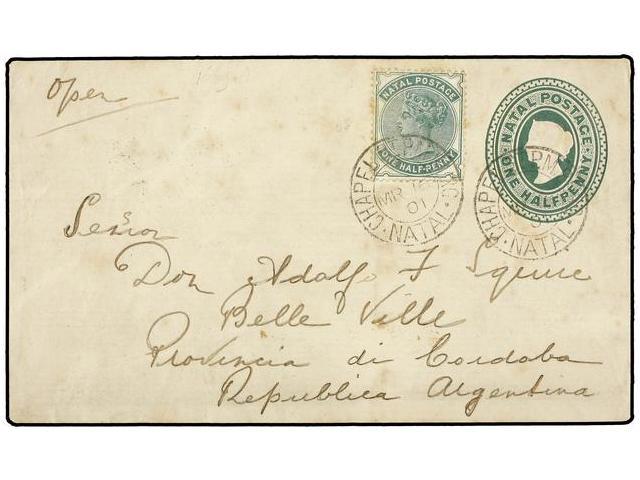 Open
NATAL POSTAGE
ONE HALF-PENNY
NATAL POSTAGE
ONE HALFPENNY
CHAPEL
PM
MR
01
NATAL
CHAPEL
PM
NATAL
Señor
Don Adolfo F Squire
Belle Ville
Provincia di Cordoba
Republica Argentina